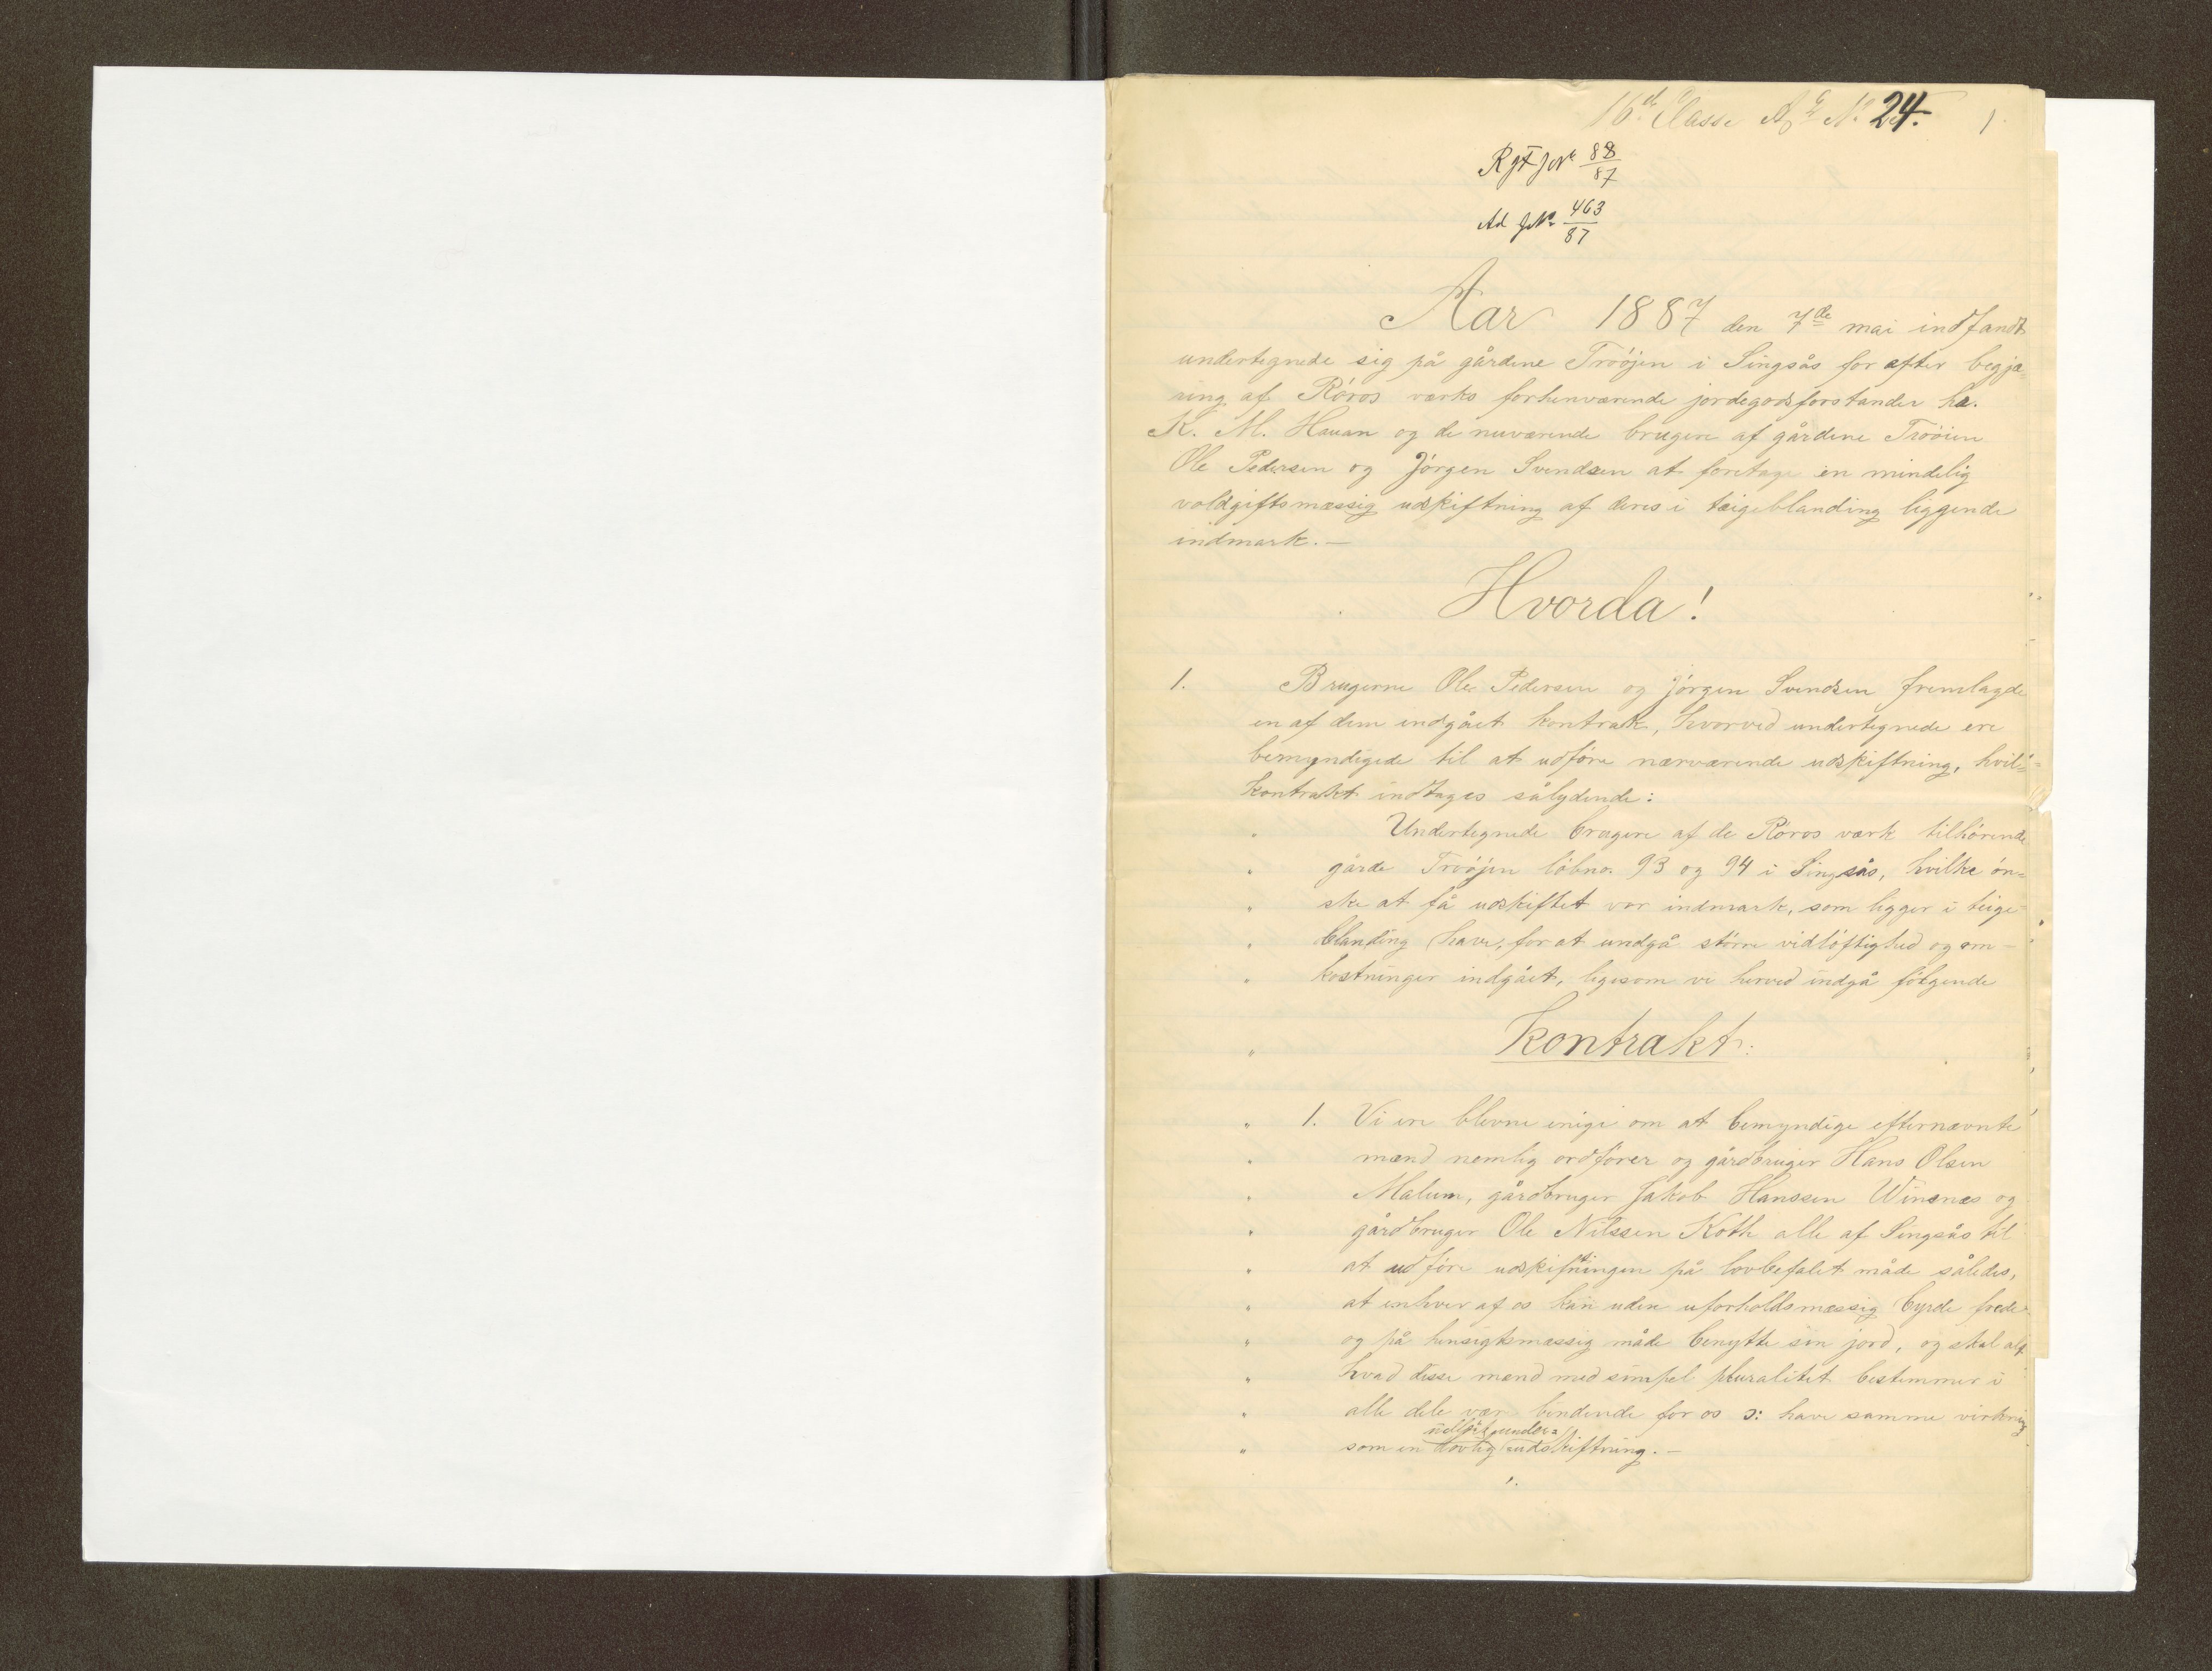 16de Classe No 24. 1
RgtJNo 88/87
Ad JNo 463/87
Aar 1887 den 7de mai indfandt
undertegnede sig på gårdene Troøjen i Singsås for after begjæ=
ring af Røros værks forhenværende jordegodsforstander hr.
K. M. Hauan og de nuværende brugere af gårdene Troøien
Ole Pedersen og Jørgen Svendsen at foretage en mindelig
voldgiftsmæssig udskiftning af deres i teigeblanding liggende
indmark. —
Hvorda!
1. Brugerne Ole Pedersen og Jørgen Svendsen fremlagde
en af dem indgået kontrakt, hvorved undertegnede ere
bemyndigede til at udføre nærværende udskiftning, hvil=
kontrakt indtages sålydende:
" Undertegnede brugere af de Røros værk tilhørende
" gårde Troøjen løbno. 93 og 94 i Singsås, hvilke øn=
" ske at få udskiftet vor indmark, som ligger i teige
" blanding have, for at undgå større vidløftighed og om-
" kostninger indgået, ligesom vi herved indgå følgende
" Kontrakt:
" 1. Vi ere blevne enige om at bemyndige efternævnte
" mænd nemlig ordfører og gårdbruger Hans Olsen
" Malum, gårdbruger Jakob Hanssen Winsnes og
" gårdbruger Ole Nilssen Koth alle af Singsås til
" at udføre udskiftningen på lovbefalet måde således,
" at enhver af os kan uden uforholdsmæssig byrde frede
" og på hensigtsmæssig måde benytte sin jord, og skal alt
" hvad disse mænd med simpel pluralitet bestemmer i
" alle dele vær bindende for os ɔ: have samme virkning
" som en lovlig udskiftning. —